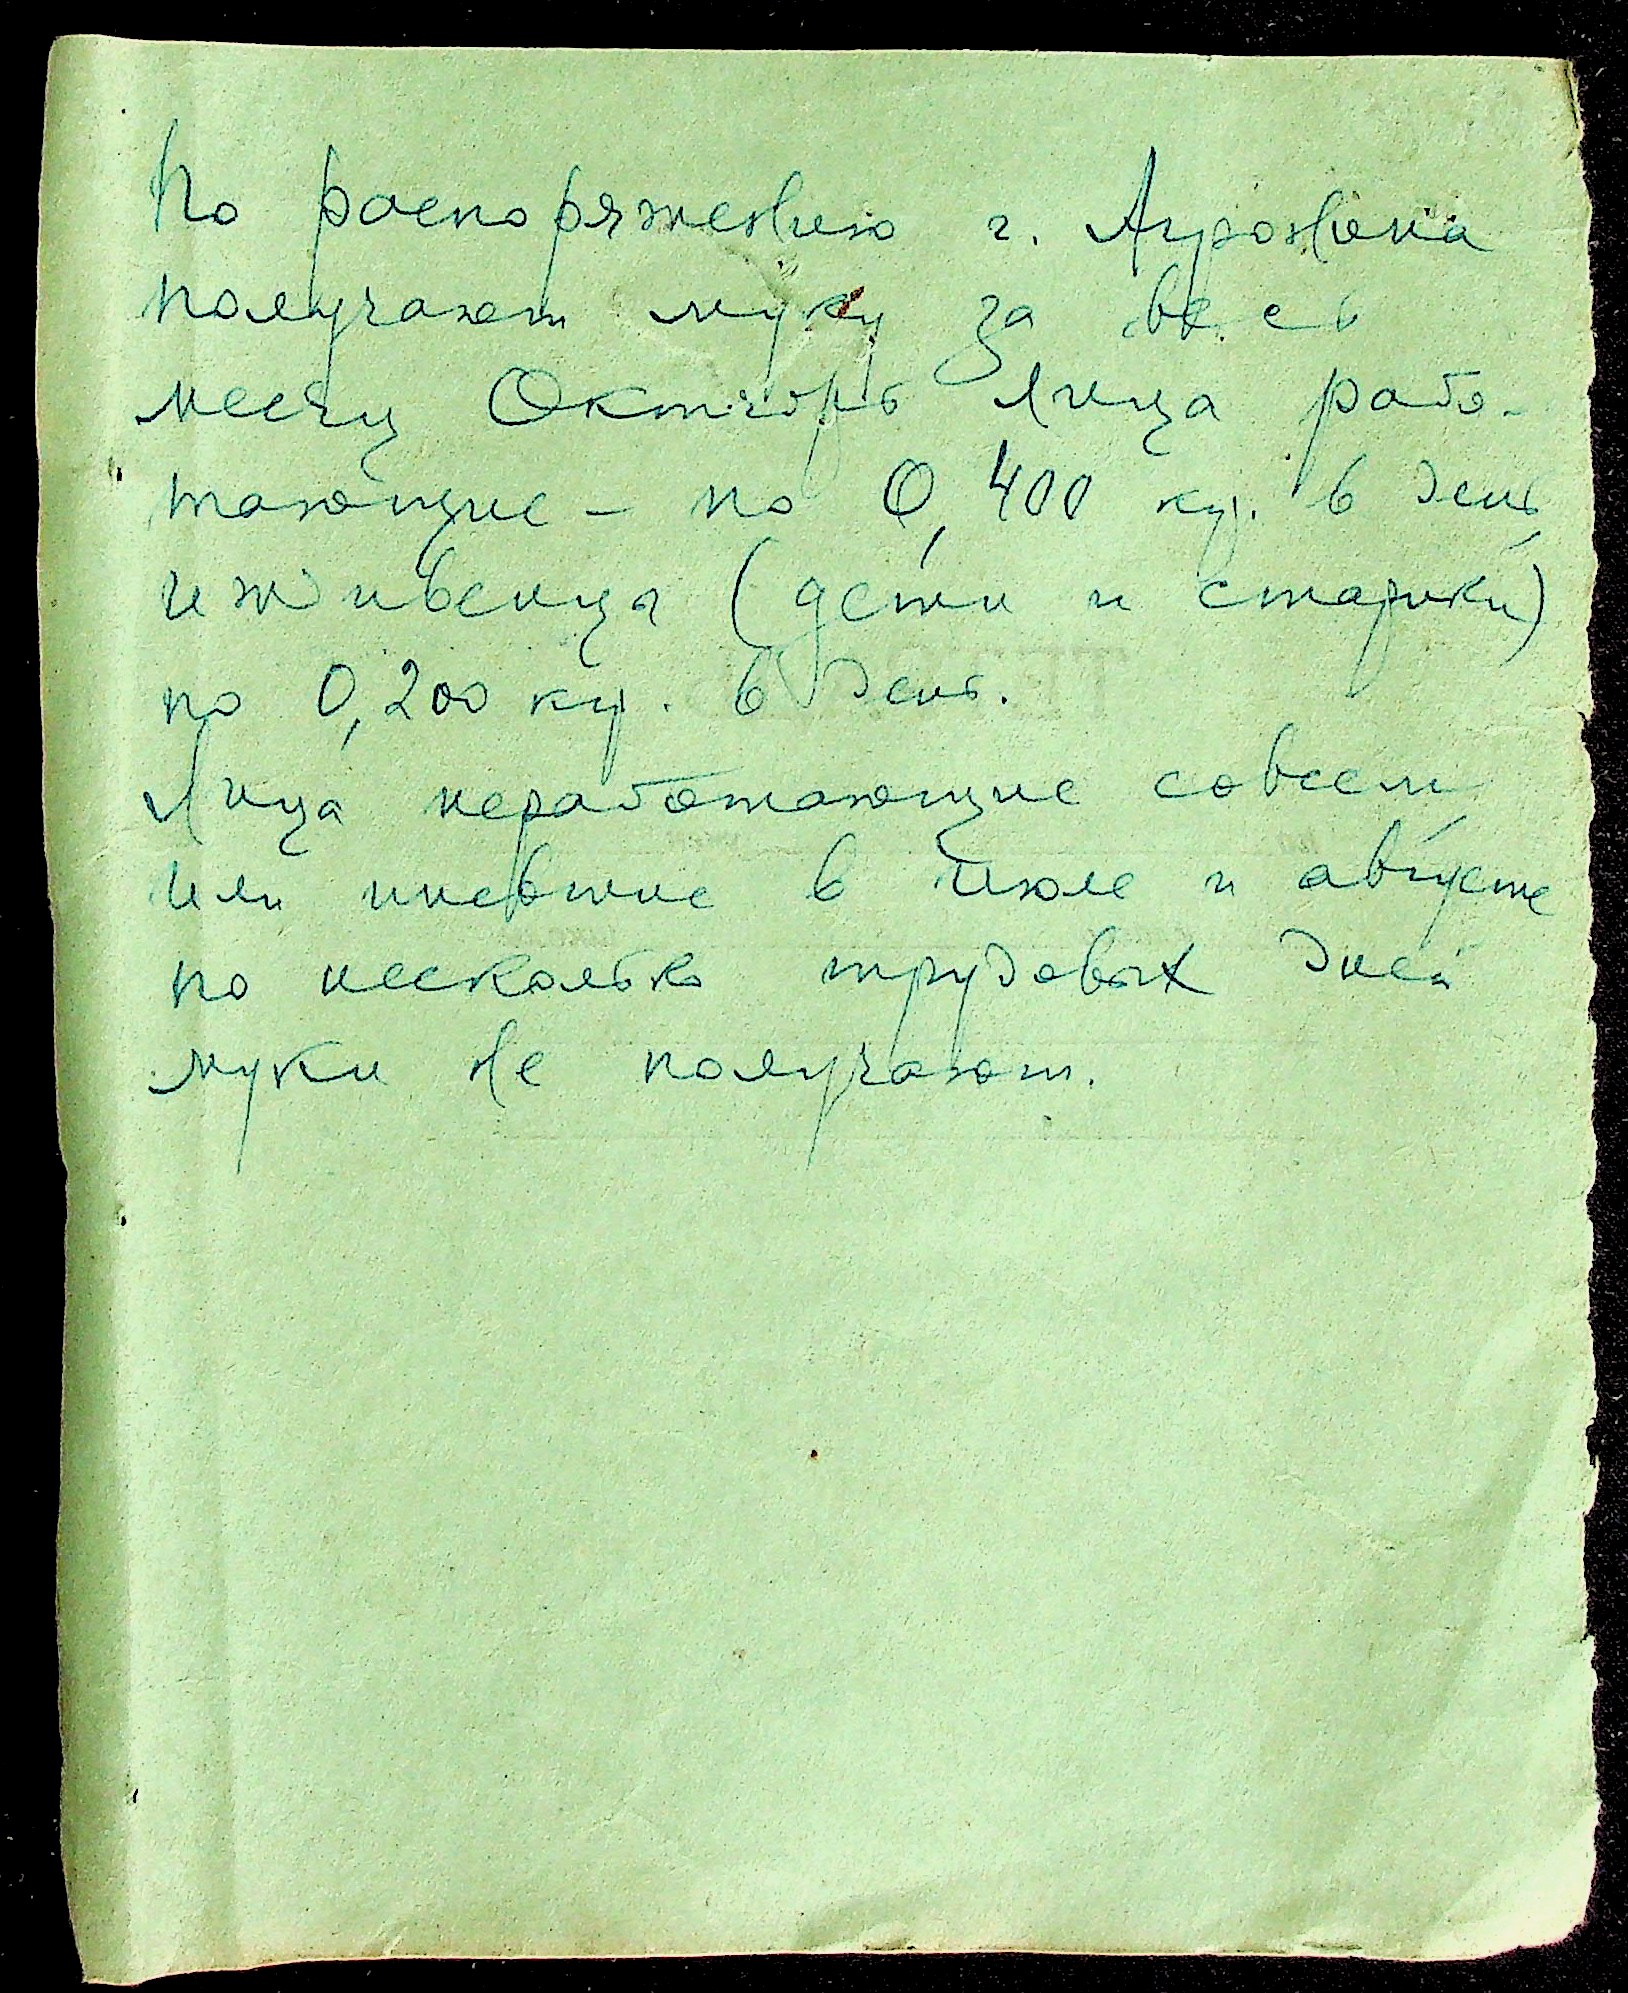 По распоряжению г. Агронома
получают муку за весь
месяц Октябрь лица рабо-
тающие – по 0,400 кг. в день,
иждивенцы (дети и старики)
по 0,200 кг. в день.
Лица неработающие совсем
или имевшие в июле и августе
по несколько трудовых дней
муки не получают.